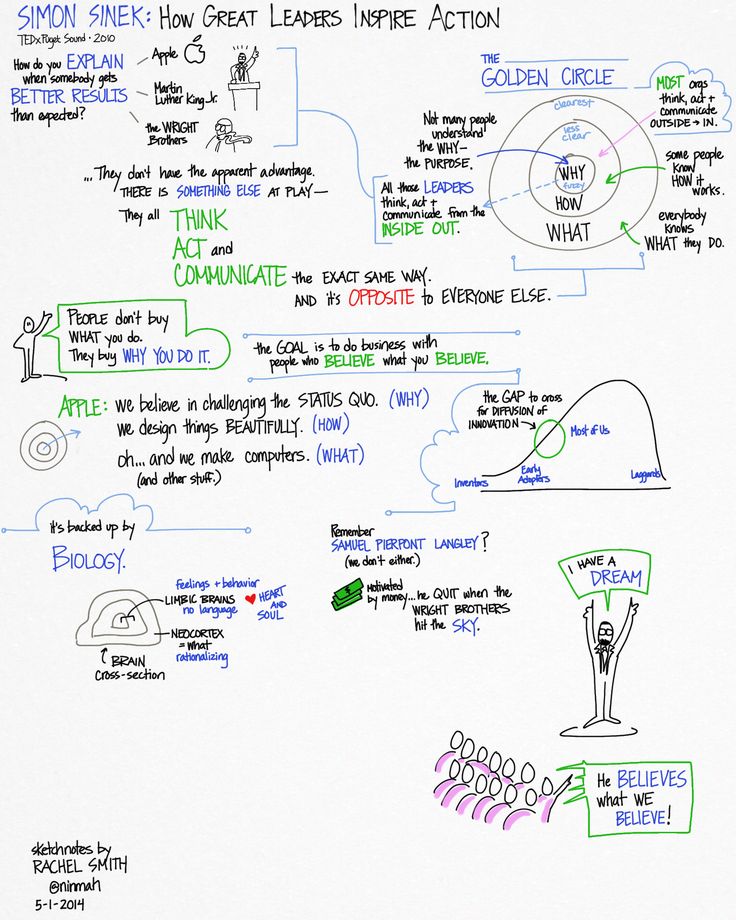 SIMON SINEK: HOW GREAT LEADERS INSPIRE ACTION
TEDxPuget Sound · 2010
How do you EXPLAIN
when somebody gets
BETTER RESULTS
than expected?
Apple
Martin
Luther King, Jr.
the WRIGHT
Brothers
... They don't have the apparent advantage.
THERE IS SOMETHING ELSE AT PLAY—
They all THINK
ACT and
COMMUNICATE the EXACT SAME WAY.
AND it's OPPOSITE to EVERYONE ELSE.
THE
GOLDEN CIRCLE
MOST orgs
think, act +
communicate
OUTSIDE → IN.
clearest
less
clear
WHY
fuzzy
HOW
WHAT
Not many people
understand
the WHY—
the PURPOSE.
All those LEADERS
think, act +
communicate from the
INSIDE OUT.
some people
know
HOW it
works.
everybody
knows
WHAT they DO.
PEOPLE don't buy
WHAT you do.
They buy WHY YOU DO IT.
the GOAL is to do business with
people who BELIEVE what you BELIEVE.
APPLE: we believe in challenging the STATUS QUO. (WHY)
we design things BEAUTIFULLY. (HOW)
oh... and we make computers. (WHAT)
(and other stuff.)
the GAP to cross
for DIFFUSION of
INNOVATION
Most of Us
Inventors
Early
Adopters
Laggards
it's backed up by
BIOLOGY.
feelings + behavior
LIMBIC BRAINS
no language
HEART
AND
SOUL
NEOCORTEX
= what
rationalizing
BRAIN
cross-section
Remember
SAMUEL PIERPONT LANGLEY?
(we don't either.)
Motivated
by money... he QUIT when the
WRIGHT BROTHERS
hit the SKY.
I HAVE A
DREAM
He BELIEVES
what WE
BELIEVE!
sketchnotes by
RACHEL SMITH
@ninmah
5-1-2014